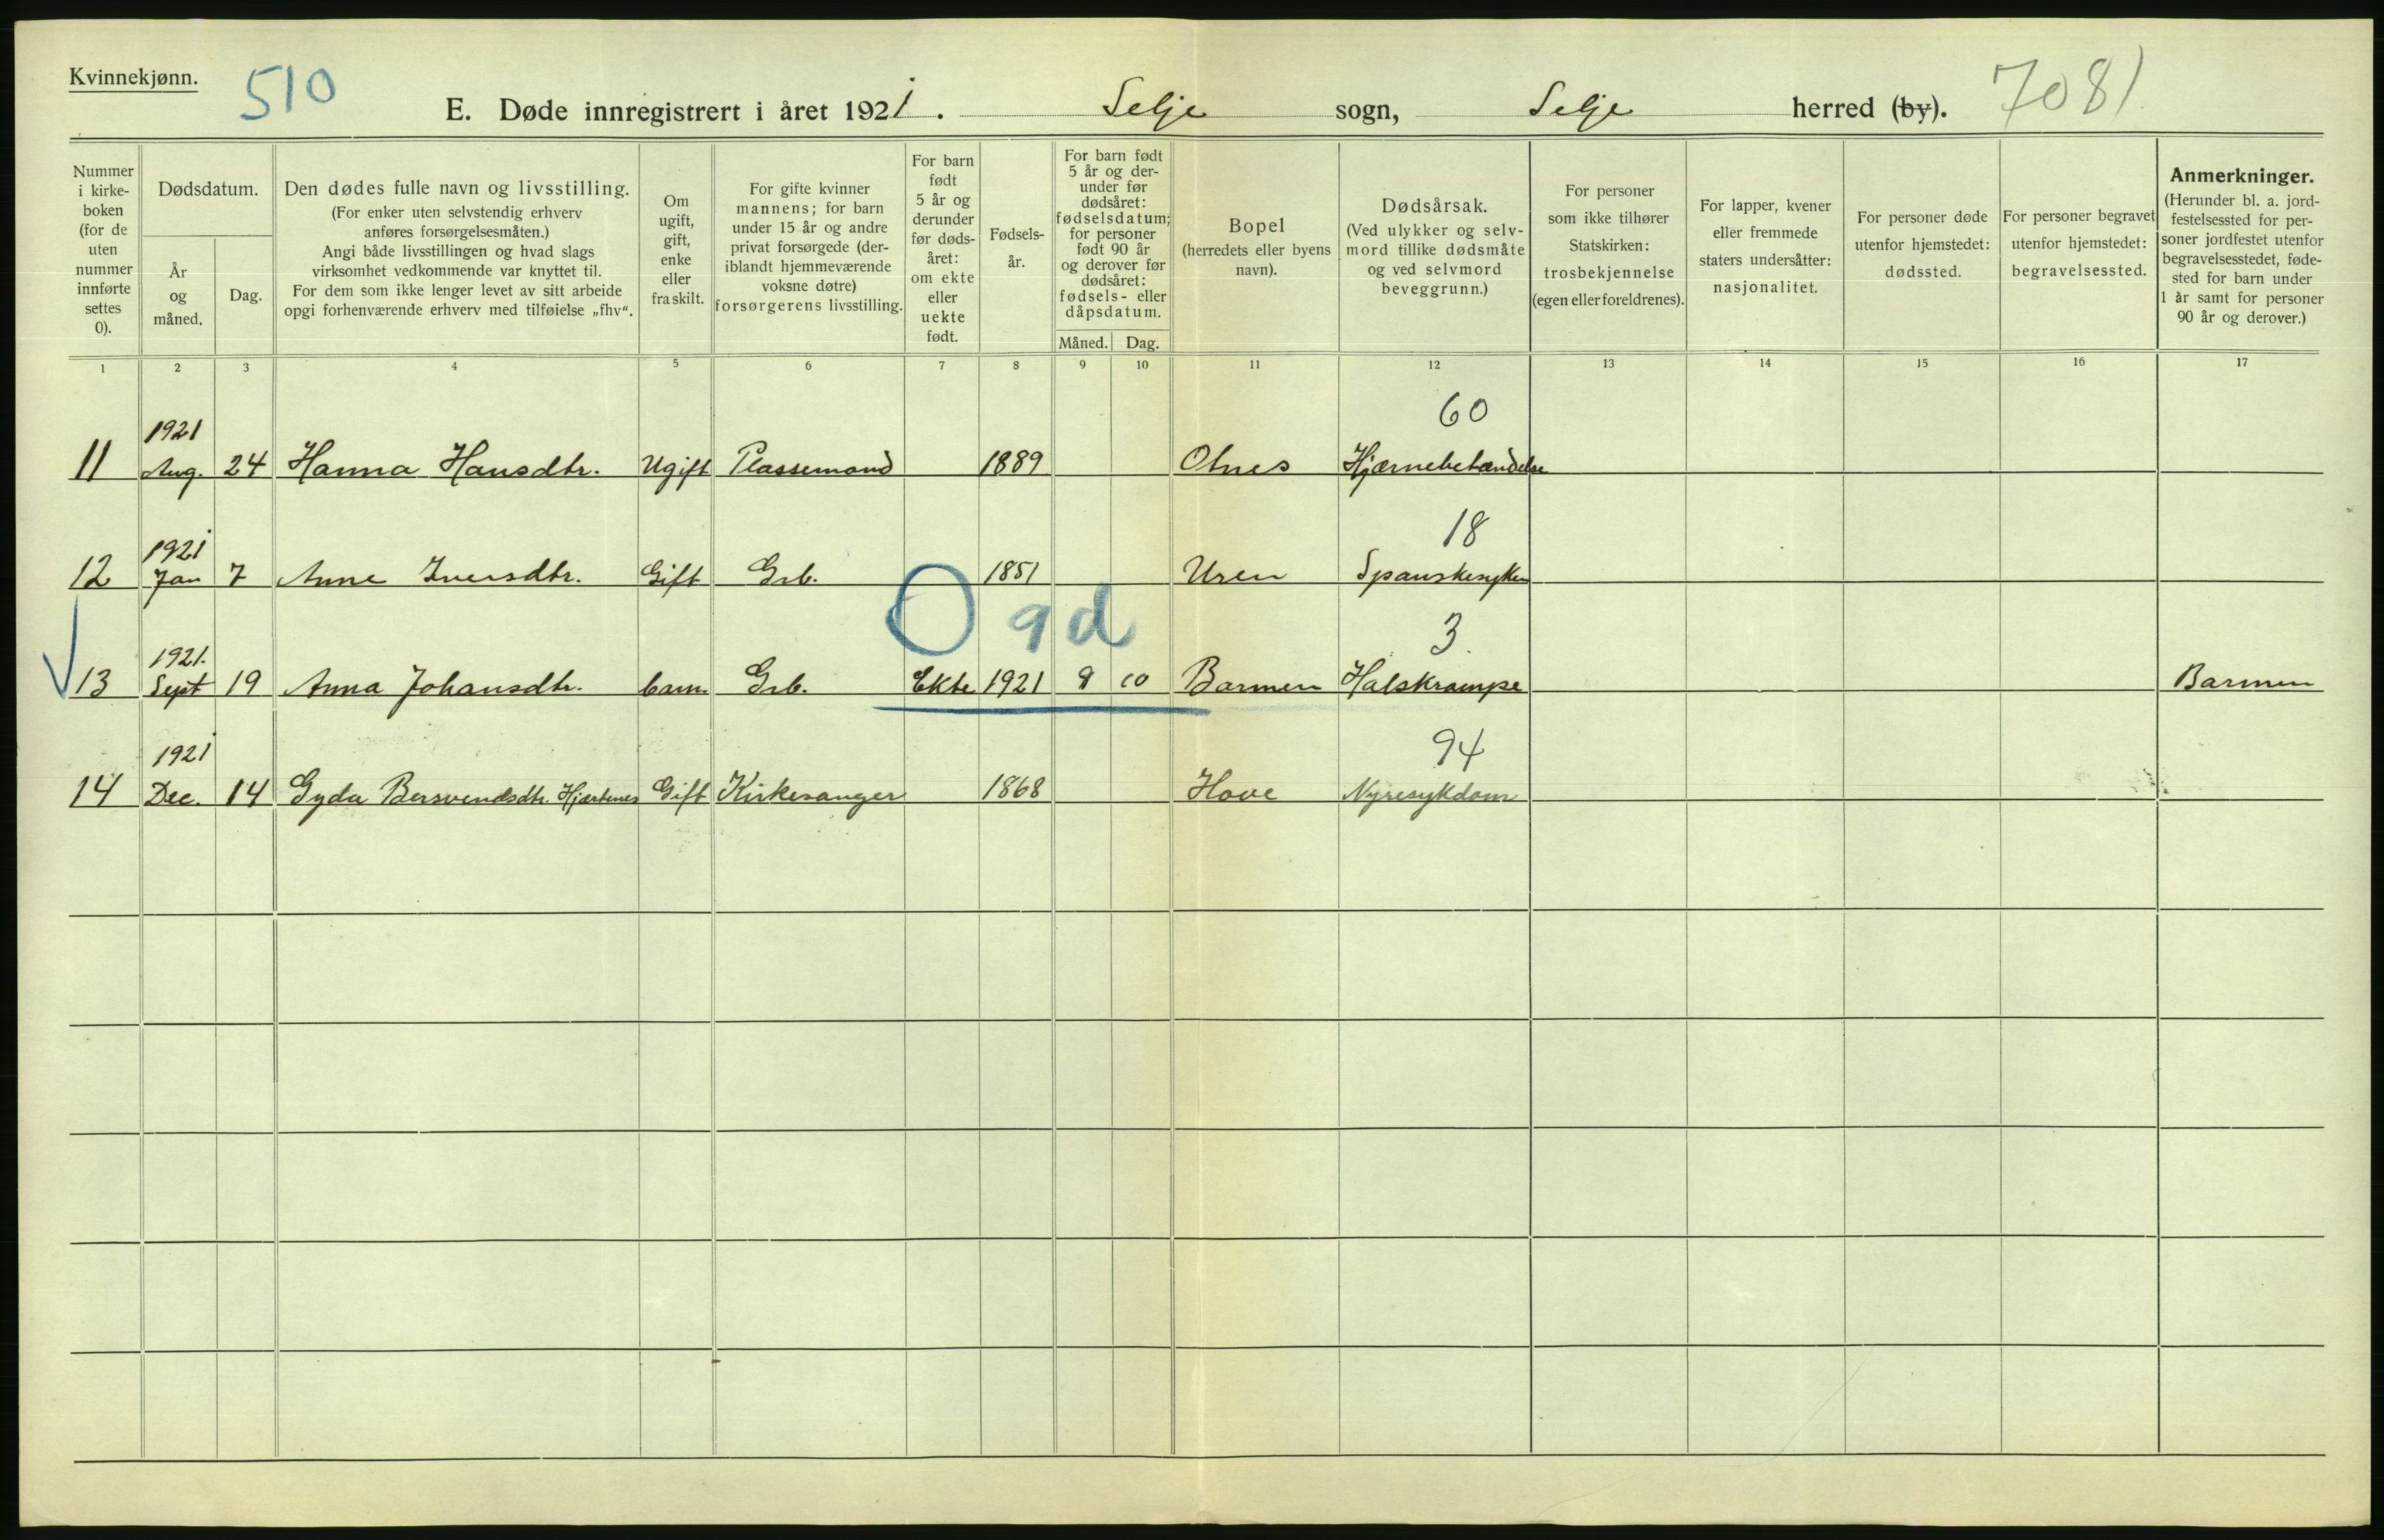 Kvinnekjønn.
510
E. Døde innregistrert i året 1921. Selje sogn, Selje herred (by).
7081
Nummer
i kirke-
boken
(for de
uten
nummer
innførte
settes
0).
Dødsdatum.
År
og
måned.
Dag.
Den dødes fulle navn og livsstilling.
(For enker uten selvstendig erhverv
anføres forsørgelsesmåten.)
Angi både livsstillingen og hvad slags
virksomhet vedkommende var knyttet til.
For dem som ikke lenger levet av sitt arbeide
opgi forhenværende erhverv med tilføielse „fhv“.
Om
ugift,
gift,
enke
eller
fraskilt.
For gifte kvinner
mannens; for barn
under 15 år og andre
privat forsørgede (der-
iblandt hjemmeværende
voksne døtre)
forsørgerens livsstilling.
For barn
født
5 år og
derunder
før døds-
året:
om ekte
eller
uekte
født.
Fødsels-
år.
For barn født
5 år og der-
under før
dødsåret:
fødselsdatum;
for personer
født 90 år
og derover før
dødsåret:
fødsels- eller
dåpsdatum.
Måned. Dag.
Bopel
(herredets eller byens
navn).
Dødsårsak.
(Ved ulykker og selv-
mord tillike dødsmåte
og ved selvmord
beveggrunn.)
For personer
som ikke tilhører
Statskirken:
trosbekjennelse
(egen eller foreldrenes).
For lapper, kvener
eller fremmede
staters undersåtter:
nasjonalitet.
For personer døde
utenfor hjemstedet:
dødssted.
For personer begravet
utenfor hjemstedet:
begravelsessted.
Anmerkninger.
(Herunder bl. a. jord-
festelsessted for per-
soner jordfestet utenfor
begravelsesstedet, føde-
sted for barn under
1 år samt for personer
90 år og derover.)
1 2 3 4 5 6 7 8 9 10 11 12 13 14 15 16 17
1921 60
11 Aug. 24 Hanna Hansdtr. Ugift Plassemand 1889 Otnes Hjærnebetændelse
1921 18
12 Jan 7 Anne Iversdtr. Gift Grb. 1851 Uren Spanskesyken
0 9 d
1921. 3
13 Sept 19 Anna Johansdtr. barn. Grb. Ekte 1921 9 10 Barmen Halskrampe Barmen
1921 94
14 Dec. 14 Gyda Bersvendsdtr. Hjærtenes Gift Kirkesanger 1868 Hove Nyresykdom